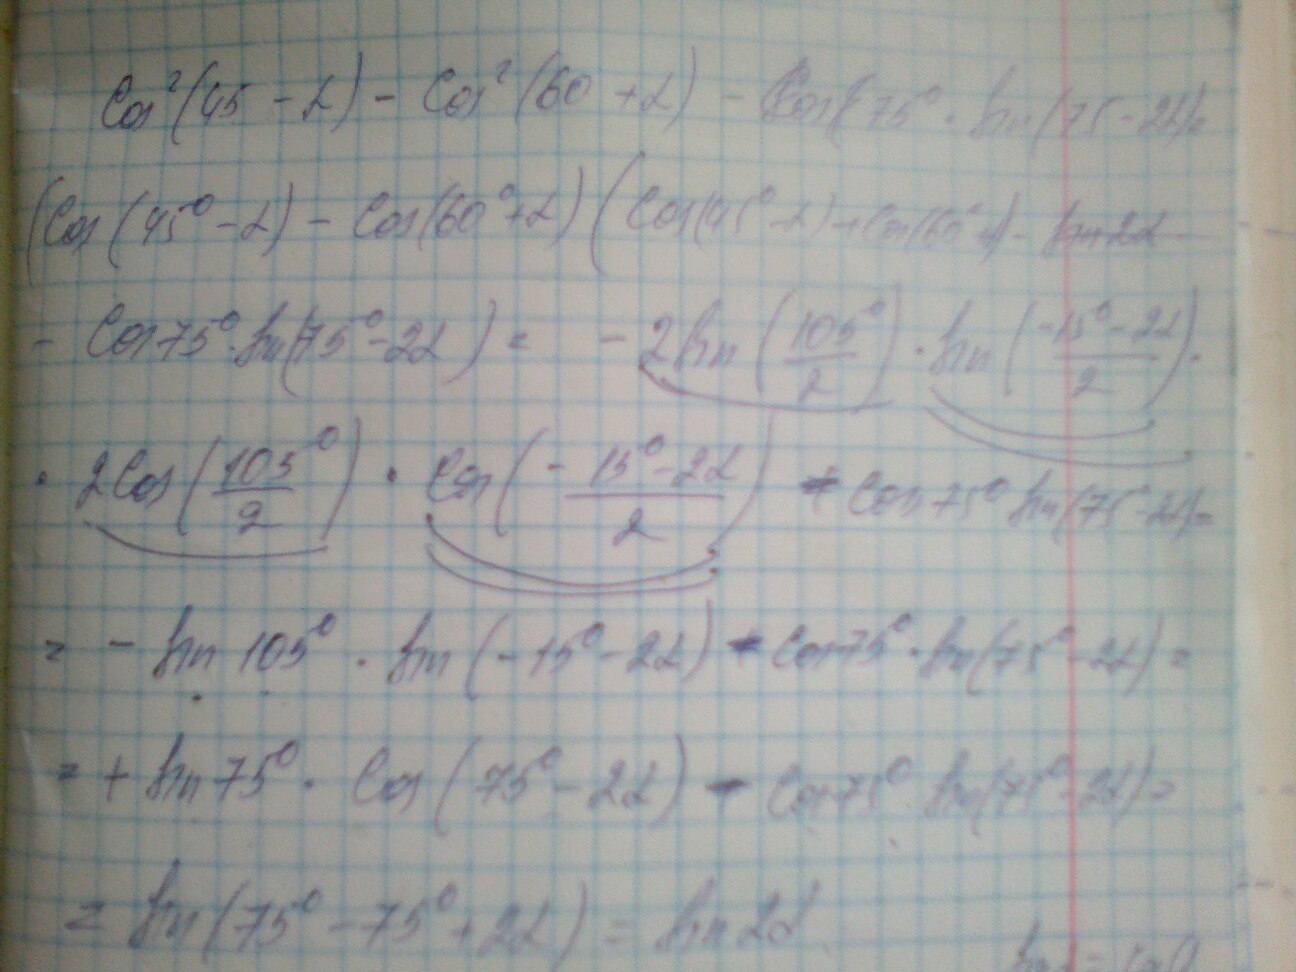 Cos²(45 - α) - Cos²(60 + α) - Cos(75° · sin(75 - 2α) =
(Cos(45° - α) - Cos(60° + α) (Cos(45° - α) + Cos(60° + α) - sin 2α -
- Cos75° · sin(75° - 2α) = - 2sin(105°/2) · sin(-15° - 2α/2) ·
· 2Cos(105°/2) · Cos(-15° - 2α/2) - Cos75° sin(75° - 2α) =
= - sin 105° · sin(-15° - 2α) - Cos75° · sin(75° - 2α) =
= + sin75° · Cos(75° - 2α) - Cos75° sin(75° - 2α) =
= sin(75° - 75° + 2α) = sin2α